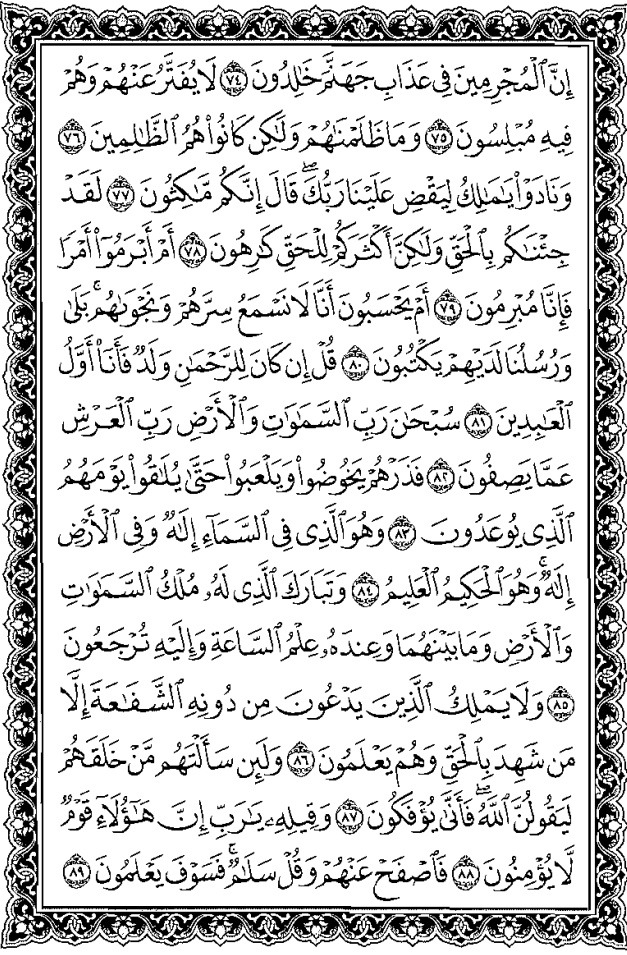 إِنَّ ٱلۡمُجۡرِمِينَ فِي عَذَابِ جَهَنَّمَ خَٰلِدُونَ ٧٤ لَا يُفَتَّرُ عَنۡهُمۡ وَهُمۡ
فِيهِ مُبۡلِسُونَ ٧٥ وَمَا ظَلَمۡنَٰهُمۡ وَلَٰكِن كَانُواْ هُمُ ٱلظَّٰلِمِينَ ٧٦
وَنَادَوۡاْ يَٰمَٰلِكُ لِيَقۡضِ عَلَيۡنَا رَبُّكَۖ قَالَ إِنَّكُم مَّٰكِثُونَ ٧٧ لَقَدۡ
جِئۡنَٰكُم بِٱلۡحَقِّ وَلَٰكِنَّ أَكۡثَرَكُمۡ لِلۡحَقِّ كَٰرِهُونَ ٧٨ أَمۡ أَبۡرَمُوٓاْ أَمۡرٗا
فَإِنَّا مُبۡرِمُونَ ٧٩ أَمۡ يَحۡسَبُونَ أَنَّا لَا نَسۡمَعُ سِرَّهُمۡ وَنَجۡوَىٰهُمۚ بَلَىٰ
وَرُسُلُنَا لَدَيۡهِمۡ يَكۡتُبُونَ ٨٠ قُلۡ إِن كَانَ لِلرَّحۡمَٰنِ وَلَدٞ فَأَنَا۠ أَوَّلُ
ٱلۡعَٰبِدِينَ ٨١ سُبۡحَٰنَ رَبِّ ٱلسَّمَٰوَٰتِ وَٱلۡأَرۡضِ رَبِّ ٱلۡعَرۡشِ
عَمَّا يَصِفُونَ ٨٢ فَذَرۡهُمۡ يَخُوضُواْ وَيَلۡعَبُواْ حَتَّىٰ يُلَٰقُواْ يَوۡمَهُمُ
ٱلَّذِي يُوعَدُونَ ٨٣ وَهُوَ ٱلَّذِي فِي ٱلسَّمَآءِ إِلَٰهٞ وَفِي ٱلۡأَرۡضِ
إِلَٰهٞۚ وَهُوَ ٱلۡحَكِيمُ ٱلۡعَلِيمُ ٨٤ وَتَبَارَكَ ٱلَّذِي لَهُۥ مُلۡكُ ٱلسَّمَٰوَٰتِ
وَٱلۡأَرۡضِ وَمَا بَيۡنَهُمَا وَعِندَهُۥ عِلۡمُ ٱلسَّاعَةِ وَإِلَيۡهِ تُرۡجَعُونَ
٨٥ وَلَا يَمۡلِكُ ٱلَّذِينَ يَدۡعُونَ مِن دُونِهِ ٱلشَّفَٰعَةَ إِلَّا
مَن شَهِدَ بِٱلۡحَقِّ وَهُمۡ يَعۡلَمُونَ ٨٦ وَلَئِن سَأَلۡتَهُم مَّنۡ خَلَقَهُمۡ
لَيَقُولُنَّ ٱللَّهُۖ فَأَنَّىٰ يُؤۡفَكُونَ ٨٧ وَقِيلِهِۦ يَٰرَبِّ إِنَّ هَٰٓؤُلَآءِ قَوۡمٞ
لَّا يُؤۡمِنُونَ ٨٨ فَٱصۡفَحۡ عَنۡهُمۡ وَقُلۡ سَلَٰمٞۚ فَسَوۡفَ يَعۡلَمُونَ ٨٩